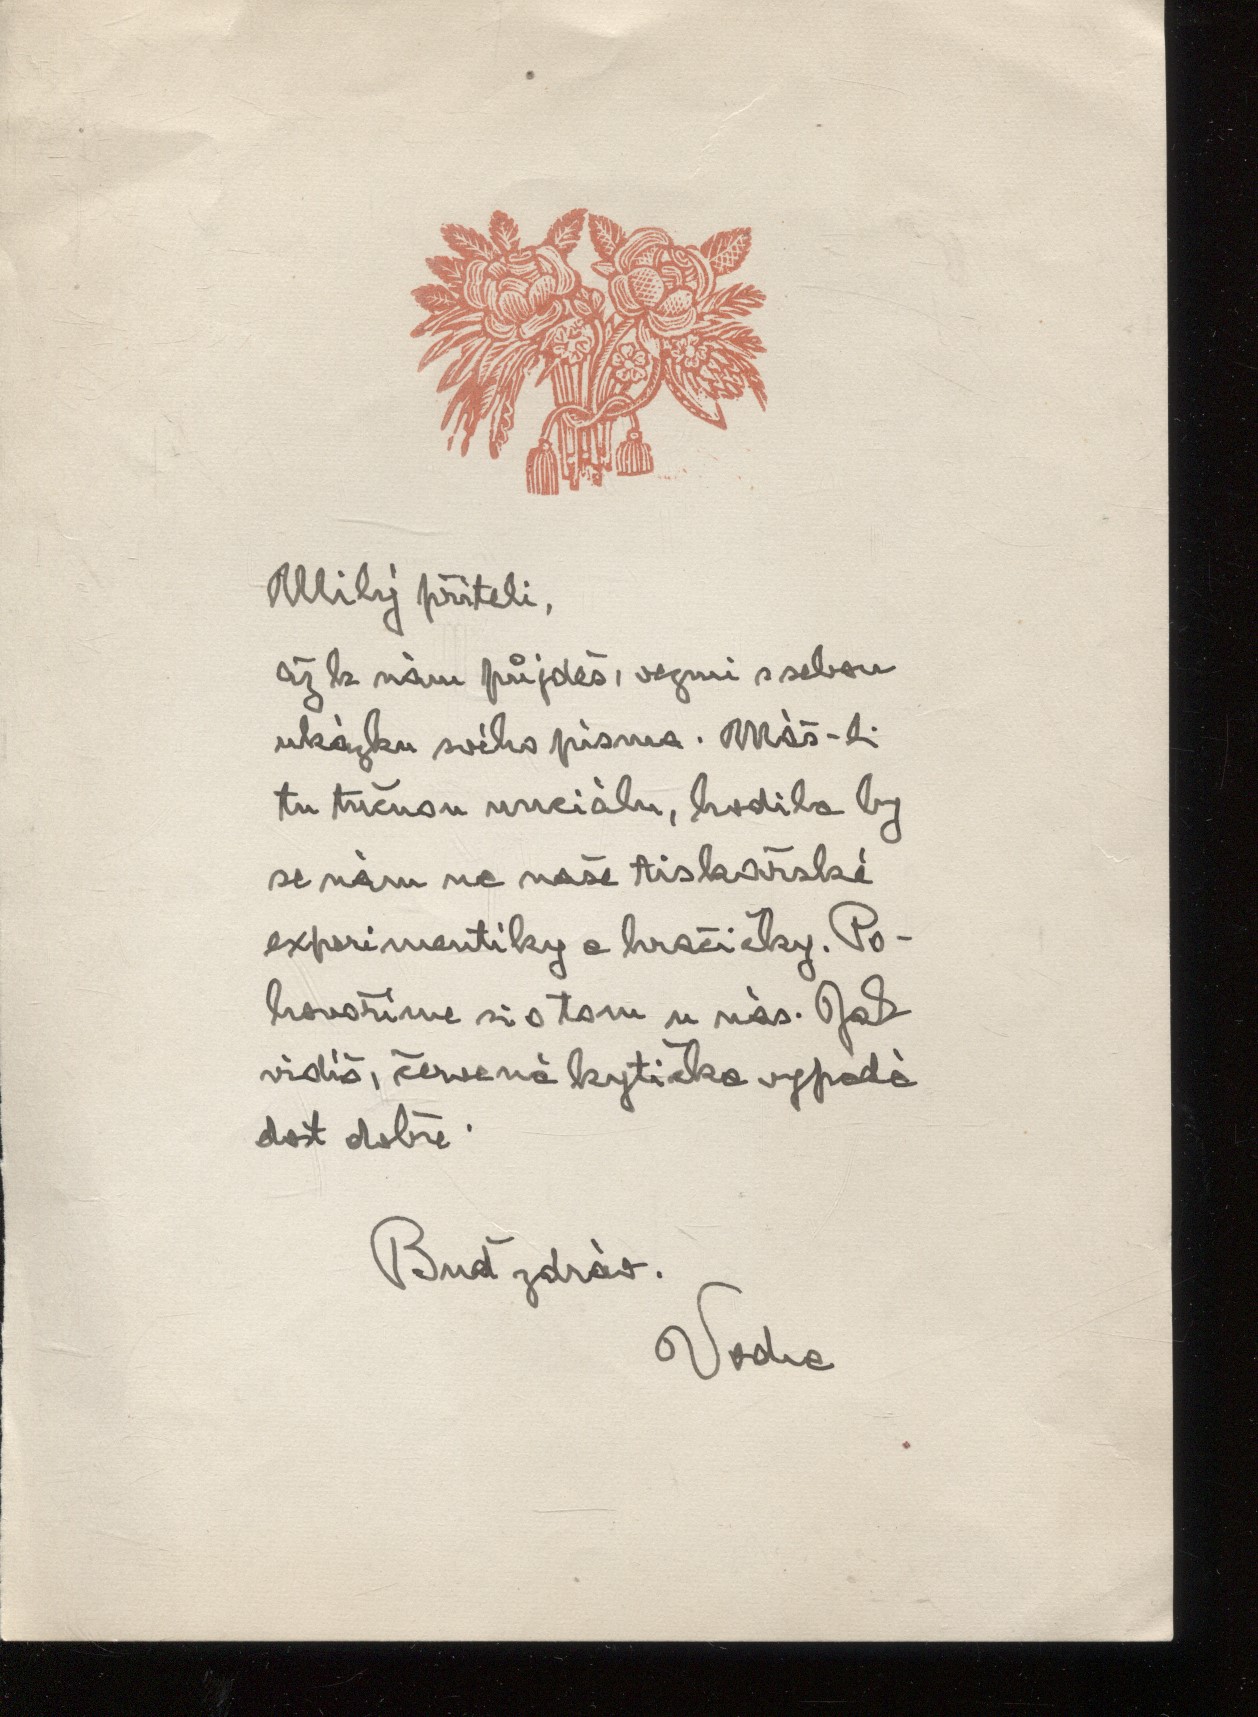 Milý příteli,
až k nám půjdeš, vezmi s sebou
ukázku svého písma. Máš-li
tu tučnou unciálu, hodila by
se nám na naše tiskařské
experimentíky a hračičky. Po-
hovoříme si o tom u nás. Jak
vidíš, červená kytička vypadá
dost dobře.
Buď zdráv.
Vodra